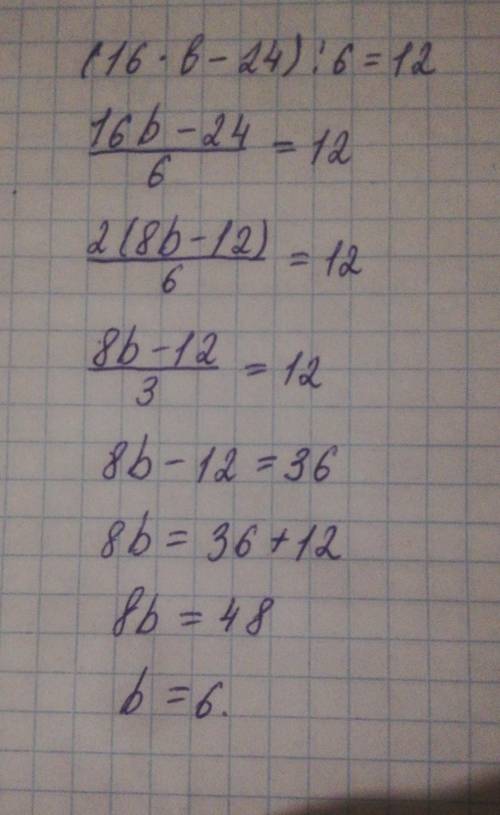 (16 · b - 24) : 6 = 12
16b - 24 / 6 = 12
2(8b - 12) / 6 = 12
8b - 12 / 3 = 12
8b - 12 = 36
8b = 36 + 12
8b = 48
b = 6.